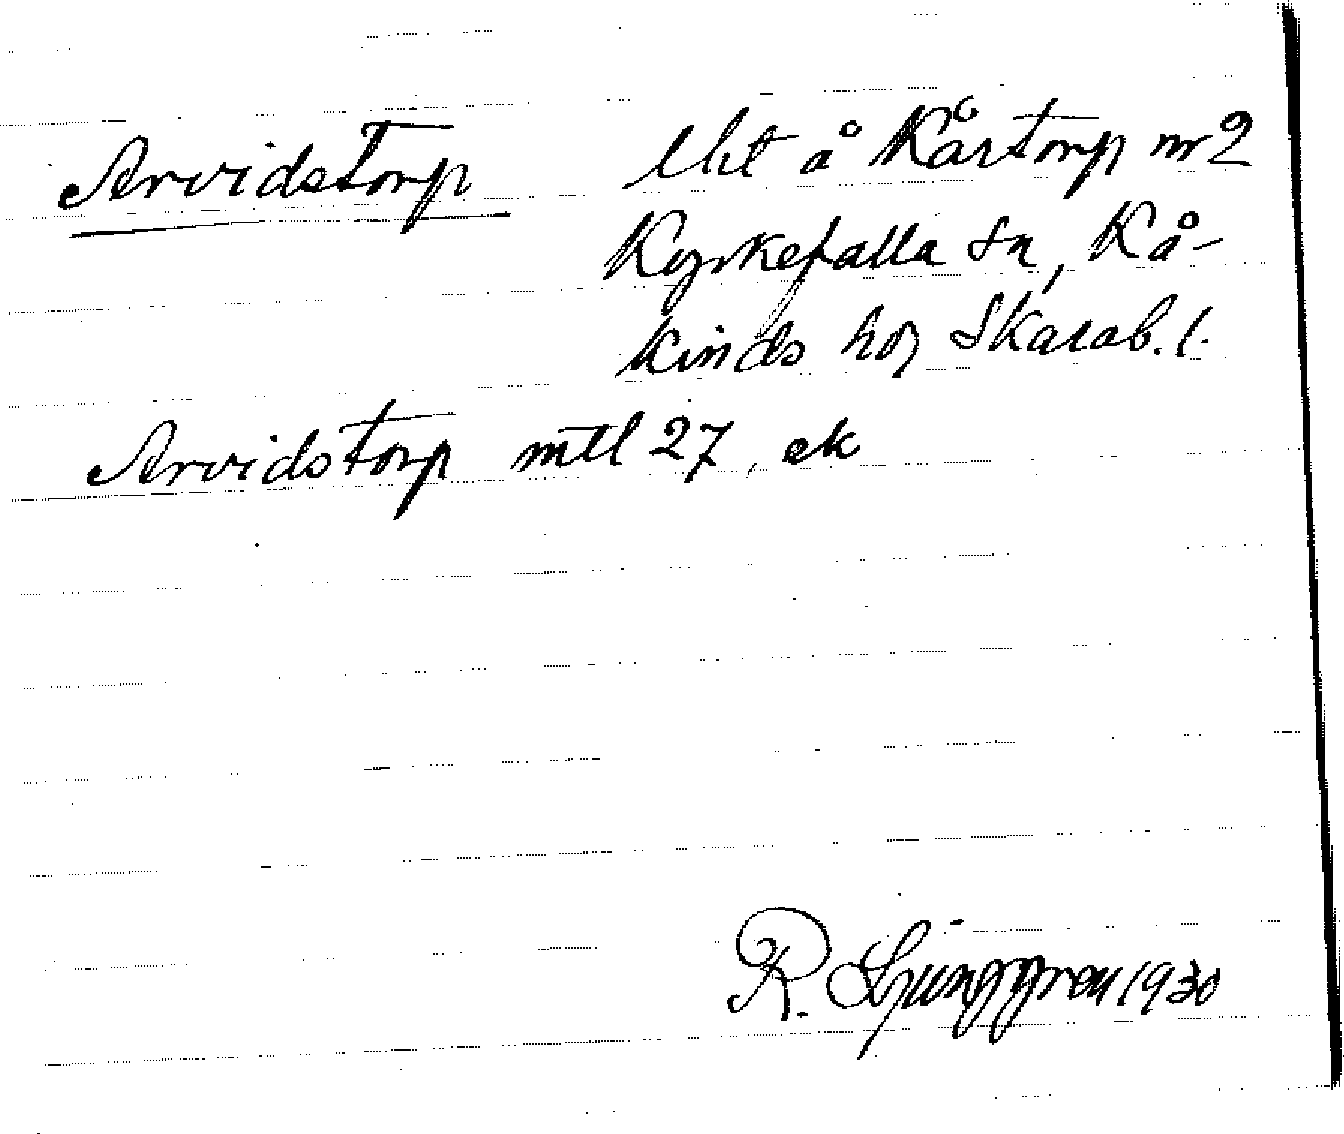 Arvidstorp Uht å Kårtorp nr 2
Kyrkefalla Sn, Kå-
kinds hd Skarab. l.
Arvidstorp mtl 27, ek
R. Ljunggren 1930